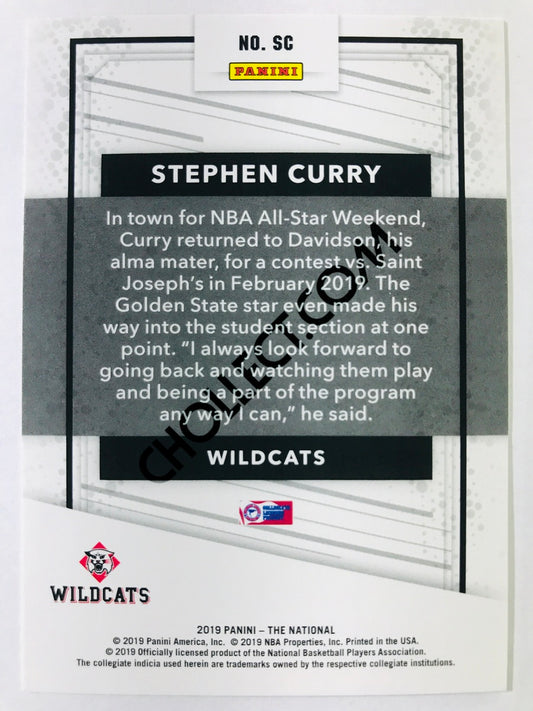 NO. SC
PANINI
STEPHEN CURRY
In town for NBA All-Star Weekend,
Curry returned to Davidson, his
alma mater, for a contest vs. Saint
Joseph's in February 2019. The
Golden State star even made his
way into the student section at one
point. "I always look forward to
going back and watching them play
and being a part of the program
any way I can," he said.
CHOLLECT.COM
WILDCATS
WILDCATS
2019 PANINI – THE NATIONAL
© 2019 Panini America, Inc. © 2019 NBA Properties, Inc. Printed in the USA.
© 2019 Officially licensed product of the National Basketball Players Association.
The collegiate indicia used herein are trademarks owned by the respective collegiate institutions.